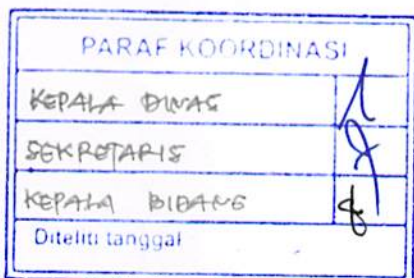 PARAF KOORDINASI
KEPALA DINAS
SEKRETARIS
KEPALA BIDANG
Diteliti tanggal